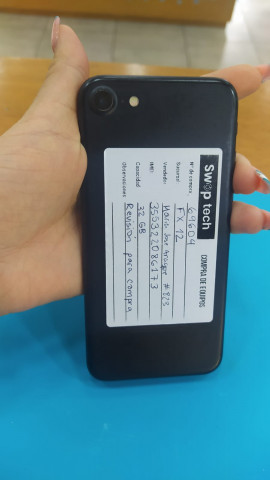 Swap tech
COMPRA DE EQUIPOS
N° de compra: 64604
Sucursal: FX 12
Vendedor: #823
IMEI: 355322086173
Capacidad: 32 GB
Observaciones: Revisión para compra